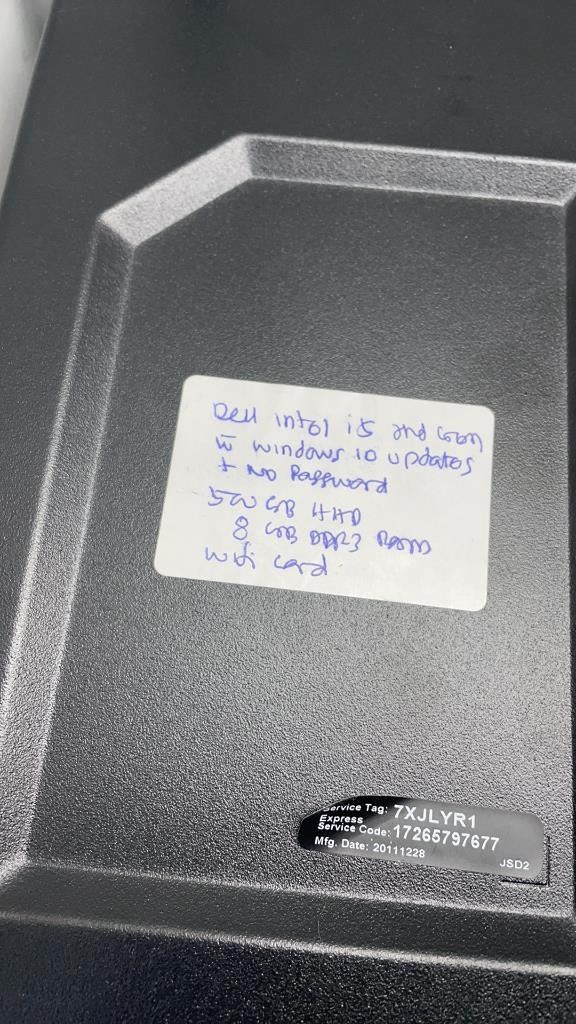 Dell intel i5 2nd Gen
w̅ windows 10 updates
+ No Password
500 GB HHD
8 GB DDR3 Ram
wifi card
Service Tag: 7XJLYR1
Express
Service Code: 17265797677
Mfg. Date: 20111228
JSD2